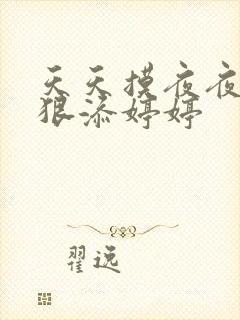 天天摸夜夜
狠添婷婷
翟逸